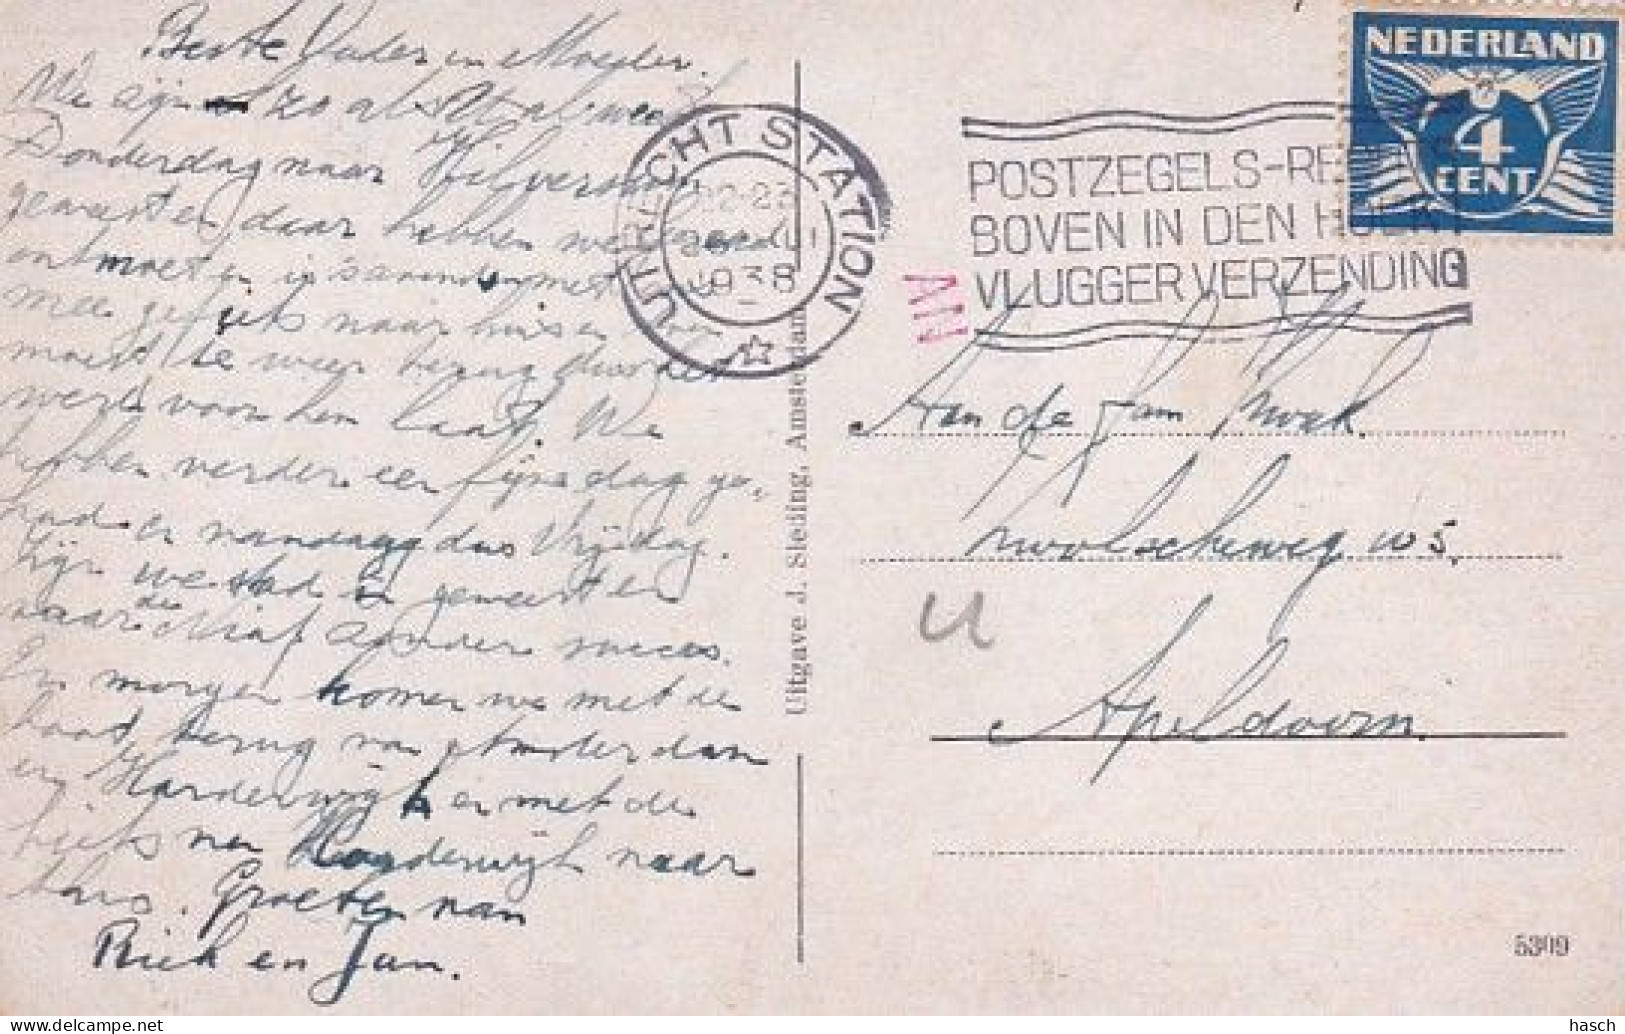 Beste Vader en Moeder.
We zijn zo als U al weet
Donderdag naar Hilversum
geweest en daar hebben we
ontmoet en is savonds met
mee gefiets naar huis en
moest te weer terug door het
werk voor hem laat. We
hebben verder een fijne dag ge-
had en vandaag dus Vrijdag.
Zijn we stad in geweest en
naar de zonder succes.
En morgen komen we met de
boot terug van Amsterdam
en Harderwijk en met de
fiets van Harderwijk naar
huis. Groeten van
Riek en Jan.
UTRECHT STATION
1938
POSTZEGELS-RE
BOVEN IN DEN HOEK
VLUGGER VERZENDING
NEDERLAND
4
CENT
Aan de fam
Zwolscheweg 105.
Apeldoorn.
Uitgave J. Sleding, Amsterdam
5309
hasch